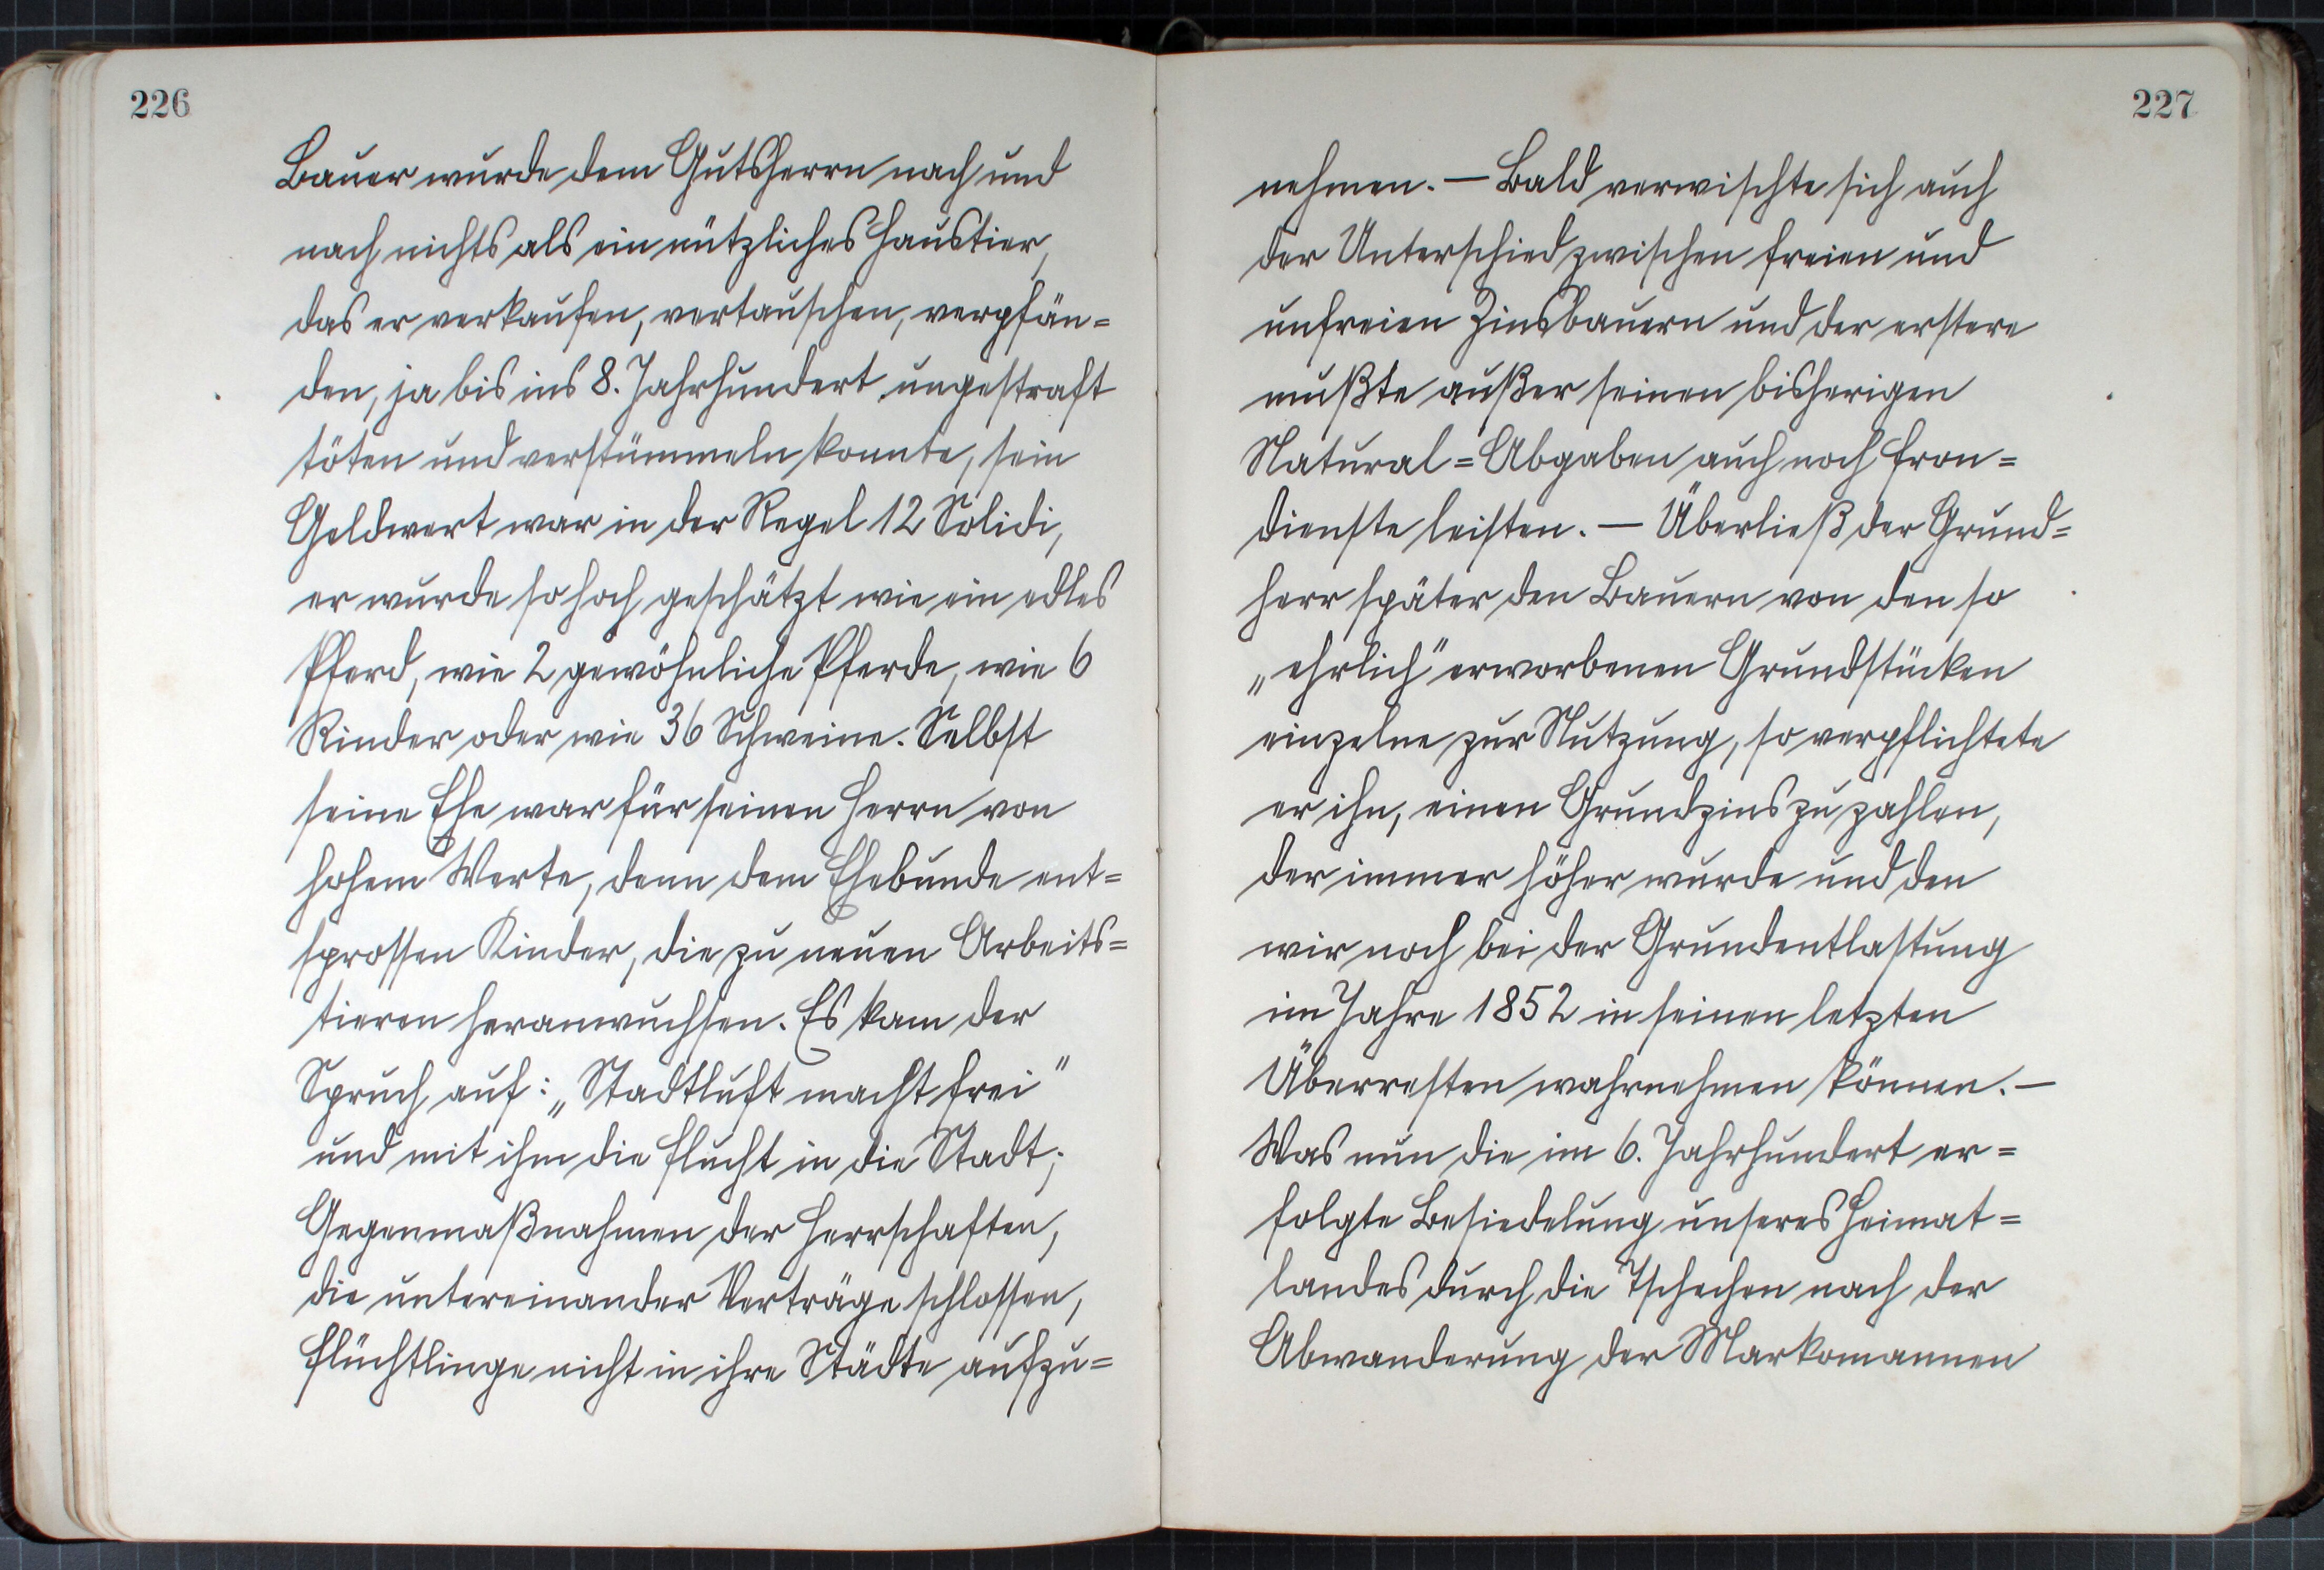 226
Bauer wurde dem Gutsherrn nach und
nach nichts als ein nützliches Haustier,
das er verkaufen, vertauschen, verpfän=
den, ja bis ins 8. Jahrhundert ungestraft
töten und verstümmeln konnte, sein
Geldwert war in der Regel 12 Solidi,
er wurde so hoch geschätzt wie ein edles
Pferd, wie 2 gewöhnliche Pferde, wie 6
Rinder oder wie 36 Schweine. Selbst
seine Ehe war für seinen Herrn von
hohem Werte, denn dem Ehebunde ent=
sprossen Kinder, die zu neuen Arbeits=
tieren heranwuchsen. Es kam der
Spruch auf: „Stadtluft macht frei"
und mit ihm die Flucht in die Stadt;
Gegenmaßnahmen der Herrschaften,
die untereinander Verträge schlossen,
Flüchtlinge nicht in ihre Städte aufzu=
227
nehmen. — Bald verwischte sich auch
der Unterschied zwischen freien und
unfreien Zinsbauern und der erstere
mußte außer seinen bisherigen
Natural=Abgaben auch noch Fron=
dienste leisten. — Überließ der Grund=
herr später den Bauern von den so
„ehrlich" erworbenen Grundstücken
einzelne zur Nutzung, so verpflichtete
er ihn, einen Grundzins zu zahlen,
der immer höher wurde und den
wir noch bei der Grundentlastung
im Jahre 1852 in seinen letzten
Überresten wahrnehmen können. —
Was nun die im 6. Jahrhundert er=
folgte Besiedelung unseres Heimat=
landes durch die Tschechen nach der
Abwanderung der Markomannen